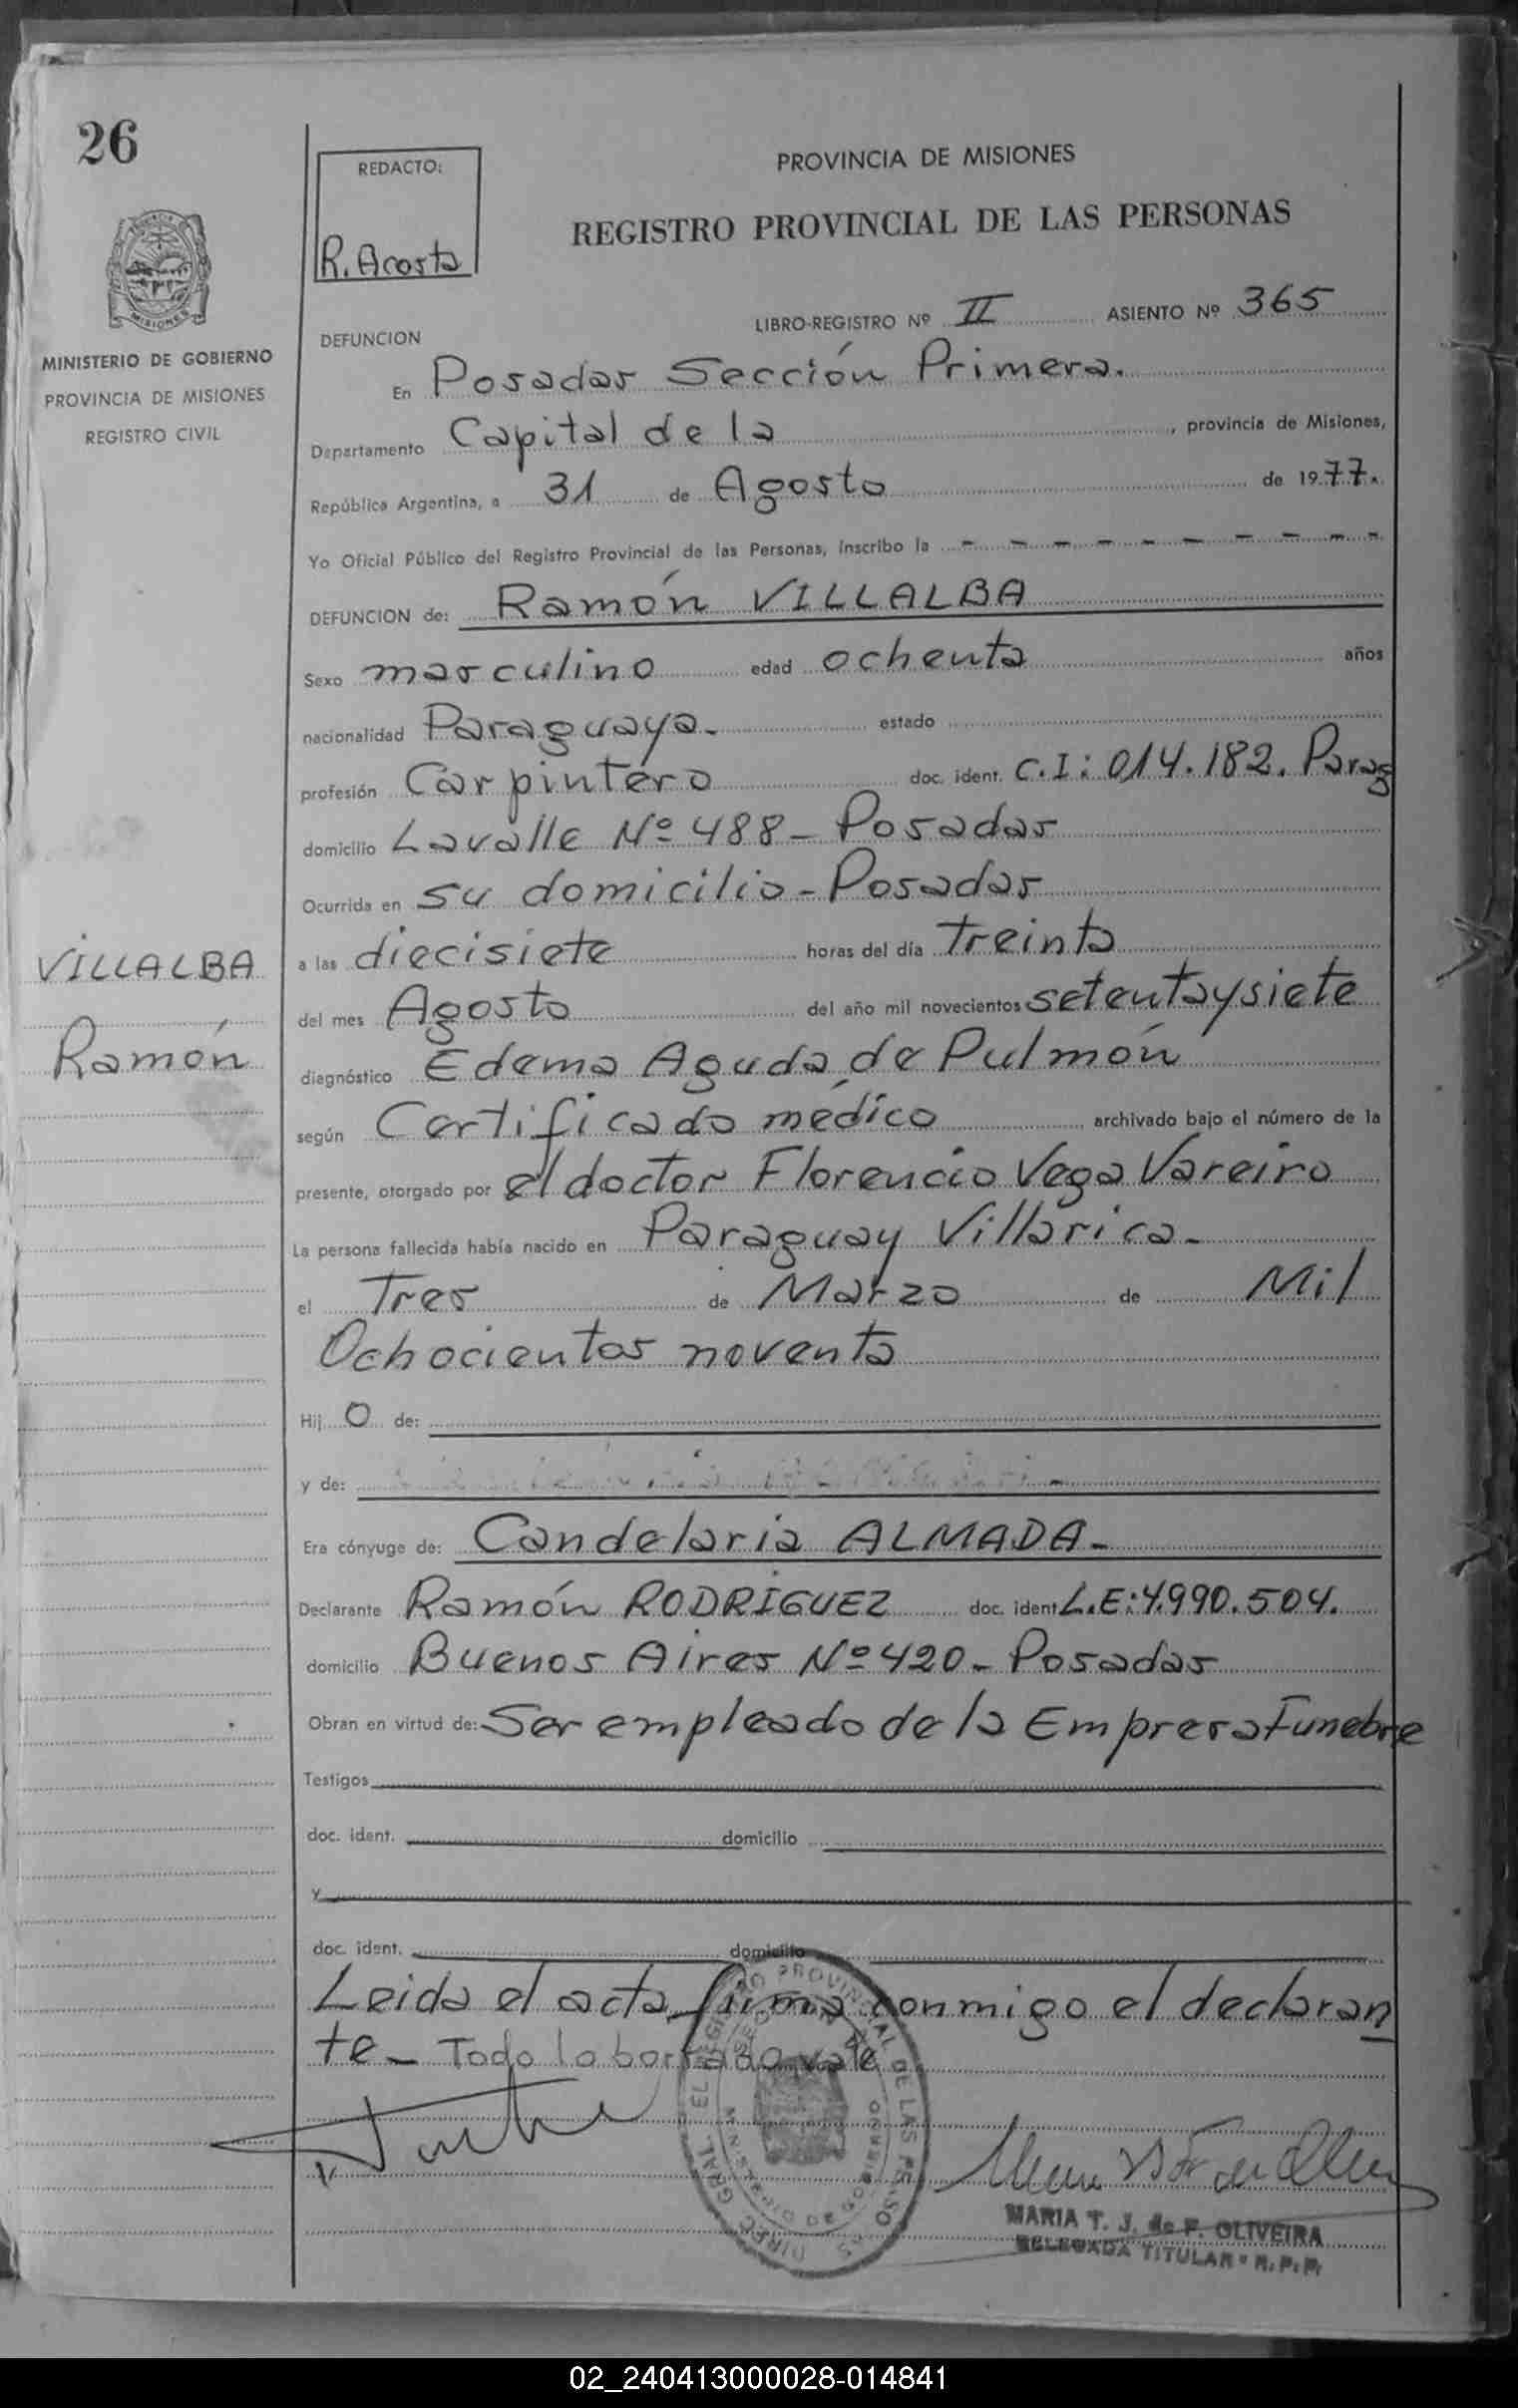 26
REDACTO:
R. Acosta
PROVINCIA DE MISIONES
REGISTRO PROVINCIAL DE LAS PERSONAS
MISIONES
MINISTERIO DE GOBIERNO
PROVINCIA DE MISIONES
REGISTRO CIVIL
LIBRO-REGISTRO Nº II ASIENTO Nº 365
DEFUNCION
En Posadas Sección Primera.
Departamento Capital de la, provincia de Misiones,
República Argentina, a 31 de Agosto de 1977.
Yo Oficial Público del Registro Provincial de las Personas, inscribo la - - - - - - - - - -
DEFUNCION de: Ramón VILLALBA
Sexo masculino edad ochenta años
nacionalidad Paraguaya. estado
profesión Carpintero doc. ident. C.I: 014.182. Parag
domicilio Lavalle Nº 488 - Posadas
Ocurrida en su domicilio - Posadas
a las diecisiete horas del día treinta
del mes Agosto del año mil novecientos setentaysiete
diagnóstico Edema Aguda de Pulmón
según Certificado médico archivado bajo el número de la
presente, otorgado por el doctor Florencio Vega Vareiro
La persona fallecida había nacido en Paraguay Villarica -
el Tres de Marzo de Mil
Ochocientos noventa
Hij o de:
y de:
Era cónyuge de: Candelaria ALMADA -
Declarante Ramón RODRIGUEZ doc. ident L.E: 4.990.504.
domicilio Buenos Aires Nº 420 - Posadas
Obran en virtud de: Ser empleado de la Empresa Funebre
Testigos
doc. ident. domicilio
y
doc. ident. domicilio
Leida el acta firma conmigo el declaran
te - Todo lo borrado vale
VILLALBA
Ramón
MARIA T. J. de F. OLIVEIRA
DELEGADA TITULAR - R. P. P.
02_240413000028-014841